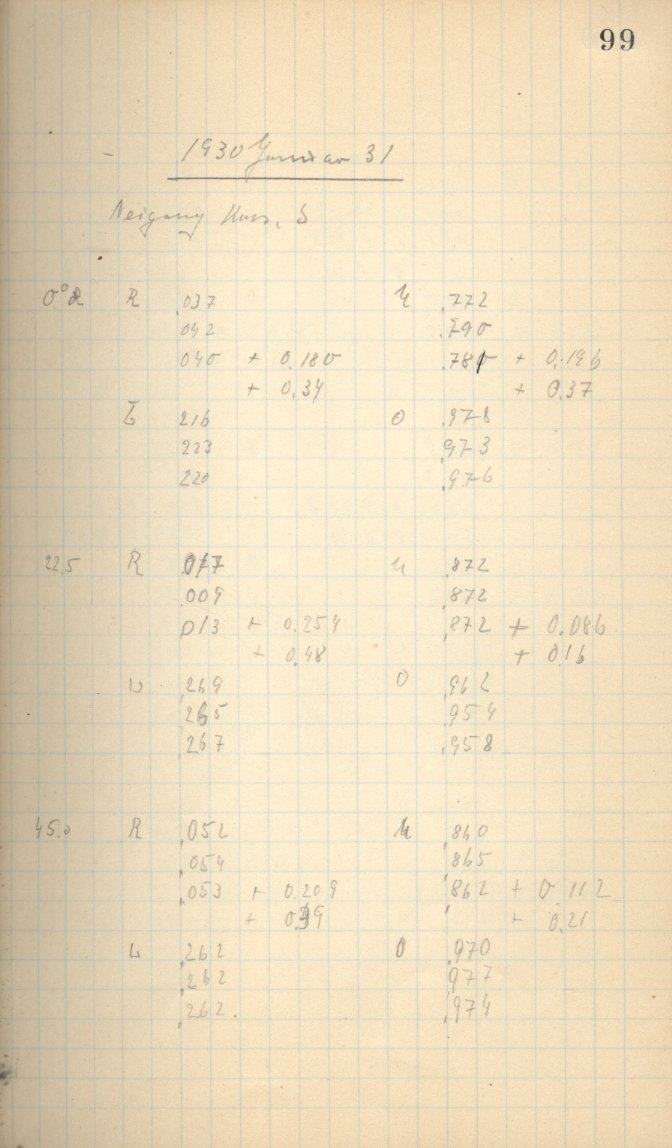 99
1930 Januar 31
Neigung Kass. S
0° R .037 U .772
.042 .790
.040 + 0.180 .781 + 0.196
+ 0.34 + 0.37
L 216 O .978
223 .973
220 .976
22.5 R .017 U .872
.009 .872
.013 + 0.254 .872 + 0.086
+ 0.48 + 0.16
L .269 O .962
.265 .954
.267 .958
45.0 R .052 U .860
.054 .865
.053 + 0.209 .862 + 0.112
+ 0.39 + 0.21
L .262 O .970
.262 .977
.262. .974